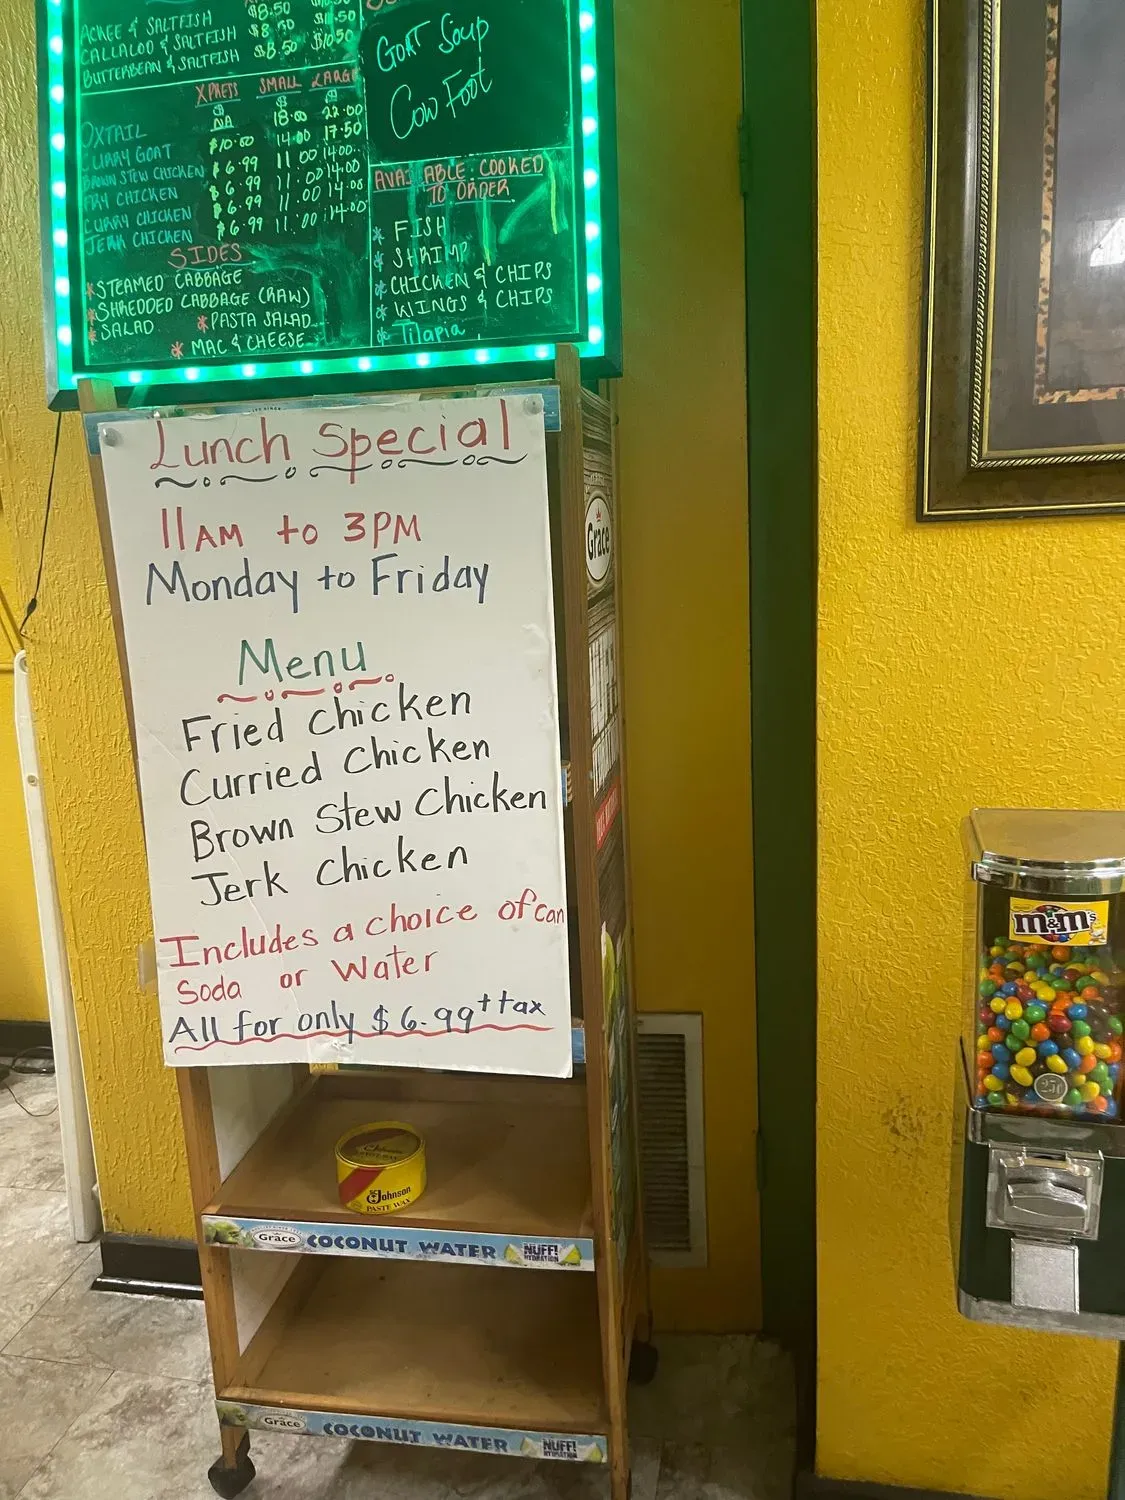 ACKEE & SALTFISH $8.50
CALLALOO & SALTFISH $8.50 $11.50
BUTTERBEAN & SALTFISH $8.50 $10.50
XPRESS SMALL LARGE
$ $ $
OXTAIL NA 18.00 22.00
CURRY GOAT $10.00 14.00 17.50
BROWN STEW CHICKEN $6.99 11.00 14.00
FRY CHICKEN $6.99 11.00 14.00
CURRY CHICKEN $6.99 11.00 14.00
JERK CHICKEN $6.99 11.00 14.00
SIDES
* STEAMED CABBAGE
* SHREDDED CABBAGE (RAW)
* SALAD * PASTA SALAD
* MAC & CHEESE
GOAT Soup
Cow Foot
AVAILABLE COOKED
TO ORDER
* FISH
* SHRIMP
* CHICKEN & CHIPS
* WINGS & CHIPS
* Tilapia
Lunch Special
11AM to 3PM
Monday to Friday
Menu
Fried Chicken
Curried Chicken
Brown Stew Chicken
Jerk Chicken
Includes a choice of can
Soda or Water
All for only $6.99 + tax
Grace
m&m's
25¢
SC Johnson
PASTE WAX
Grace COCONUT WATER NUFF!
HYDRATION
Grace COCONUT WATER NUFF!
HYDRATION